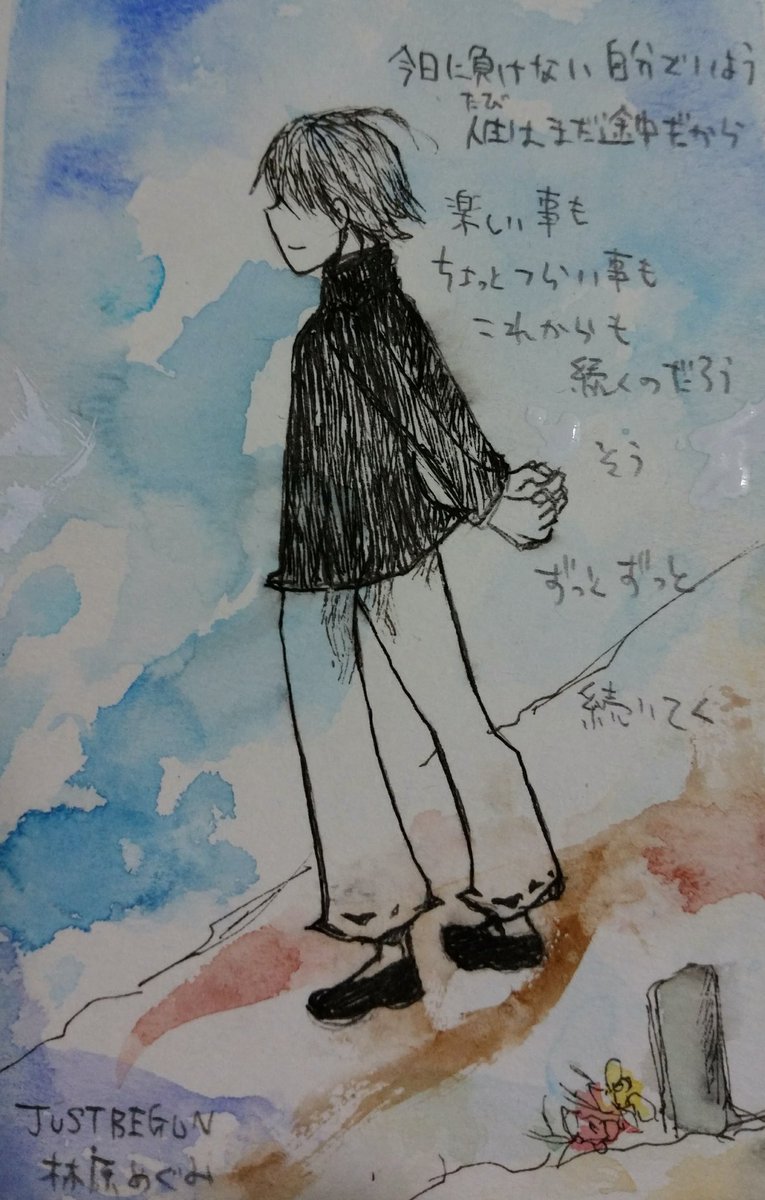 今日に負けない自分でいよう
たび
人生はまだ途中だから
楽しい事も
ちょっとつらい事も
これからも
続くのだろう
そう
ずっとずっと
続いてく
JUSTBEGUN
林原めぐみ